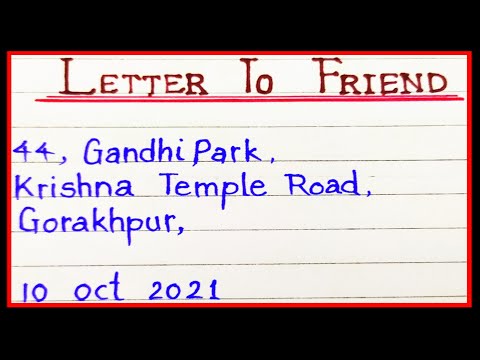 LETTER TO FRIEND
44, Gandhi Park,
Krishna Temple Road,
Gorakhpur,
10 oct 2021